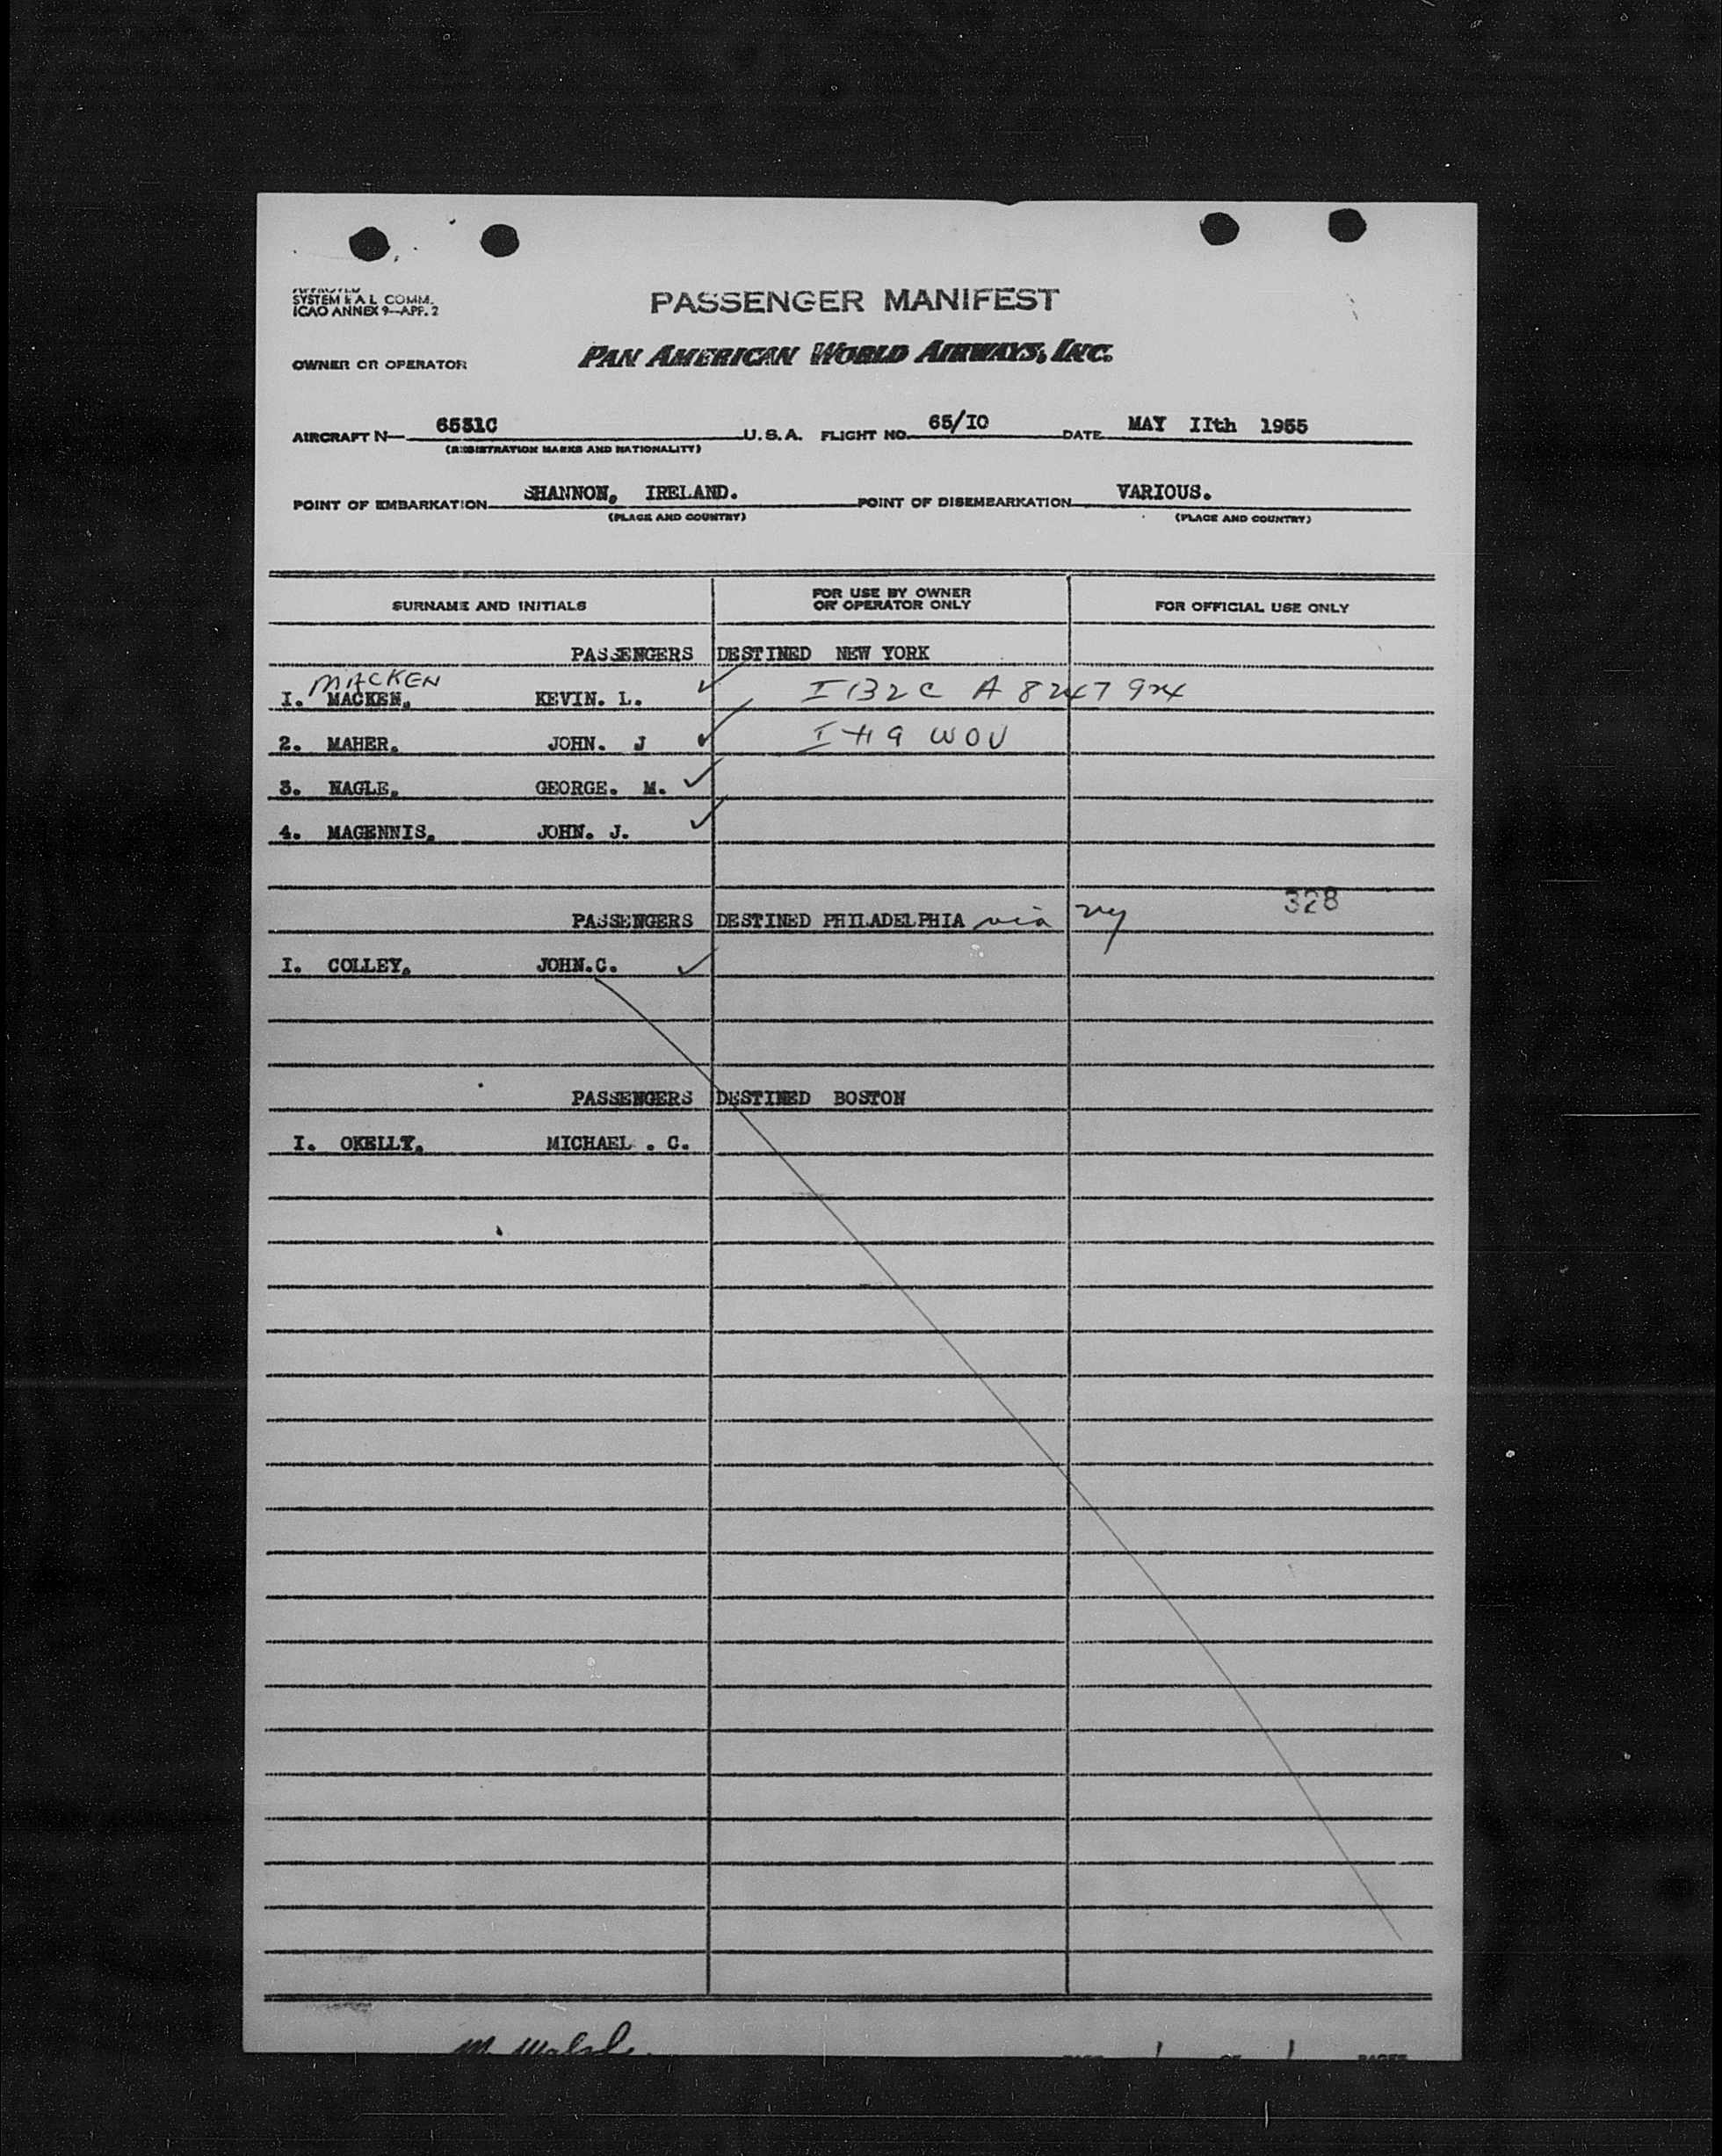 APPROVED
SYSTEM & A L COMM.
ICAO ANNEX 9—APP. 2
PASSENGER MANIFEST
OWNER OR OPERATOR PAN AMERICAN WORLD AIRWAYS, INC.
AIRCRAFT N— 6531C U.S.A. FLIGHT NO. 65/IO DATE MAY IIth 1955
(REGISTRATION MARKS AND NATIONALITY)
POINT OF EMBARKATION SHANNON, IRELAND. POINT OF DISEMBARKATION VARIOUS.
(PLACE AND COUNTRY) (PLACE AND COUNTRY)
SURNAME AND INITIALS FOR USE BY OWNER OR OPERATOR ONLY FOR OFFICIAL USE ONLY
PASSENGERS DESTINED NEW YORK
MACKEN
I. MACKEN, KEVIN. L. I B2C A 8247924
2. MAHER. JOHN. J I 49 WOV
3. NAGLE, GEORGE. M.
4. MAGENNIS, JOHN. J.
328
PASSENGERS DESTINED PHILADELPHIA via ny
I. COLLEY, JOHN.C.
PASSENGERS DESTINED BOSTON
I. OKELLY, MICHAEL . C.
M Walsh